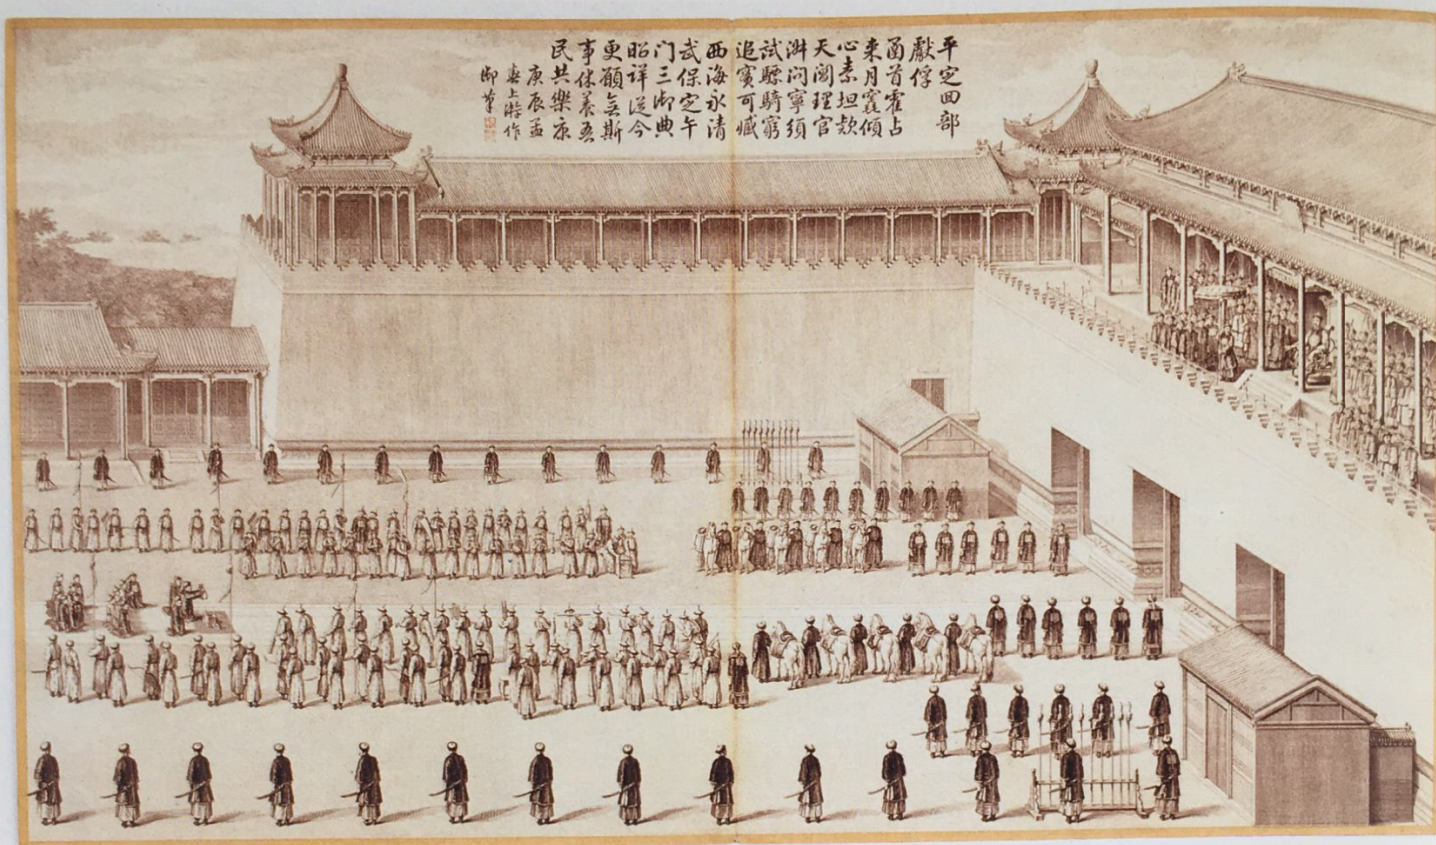 平定回部
獻俘
函首霍占
来月窟傾
心素坦欵
天閽理官
淑问寧須
試驃騎窮
追實可臧
西海永清
武保定午
门三御典
昭詳從今
更願無斯
事休養吾
民共樂康
庚辰孟
春上澣作
御筆